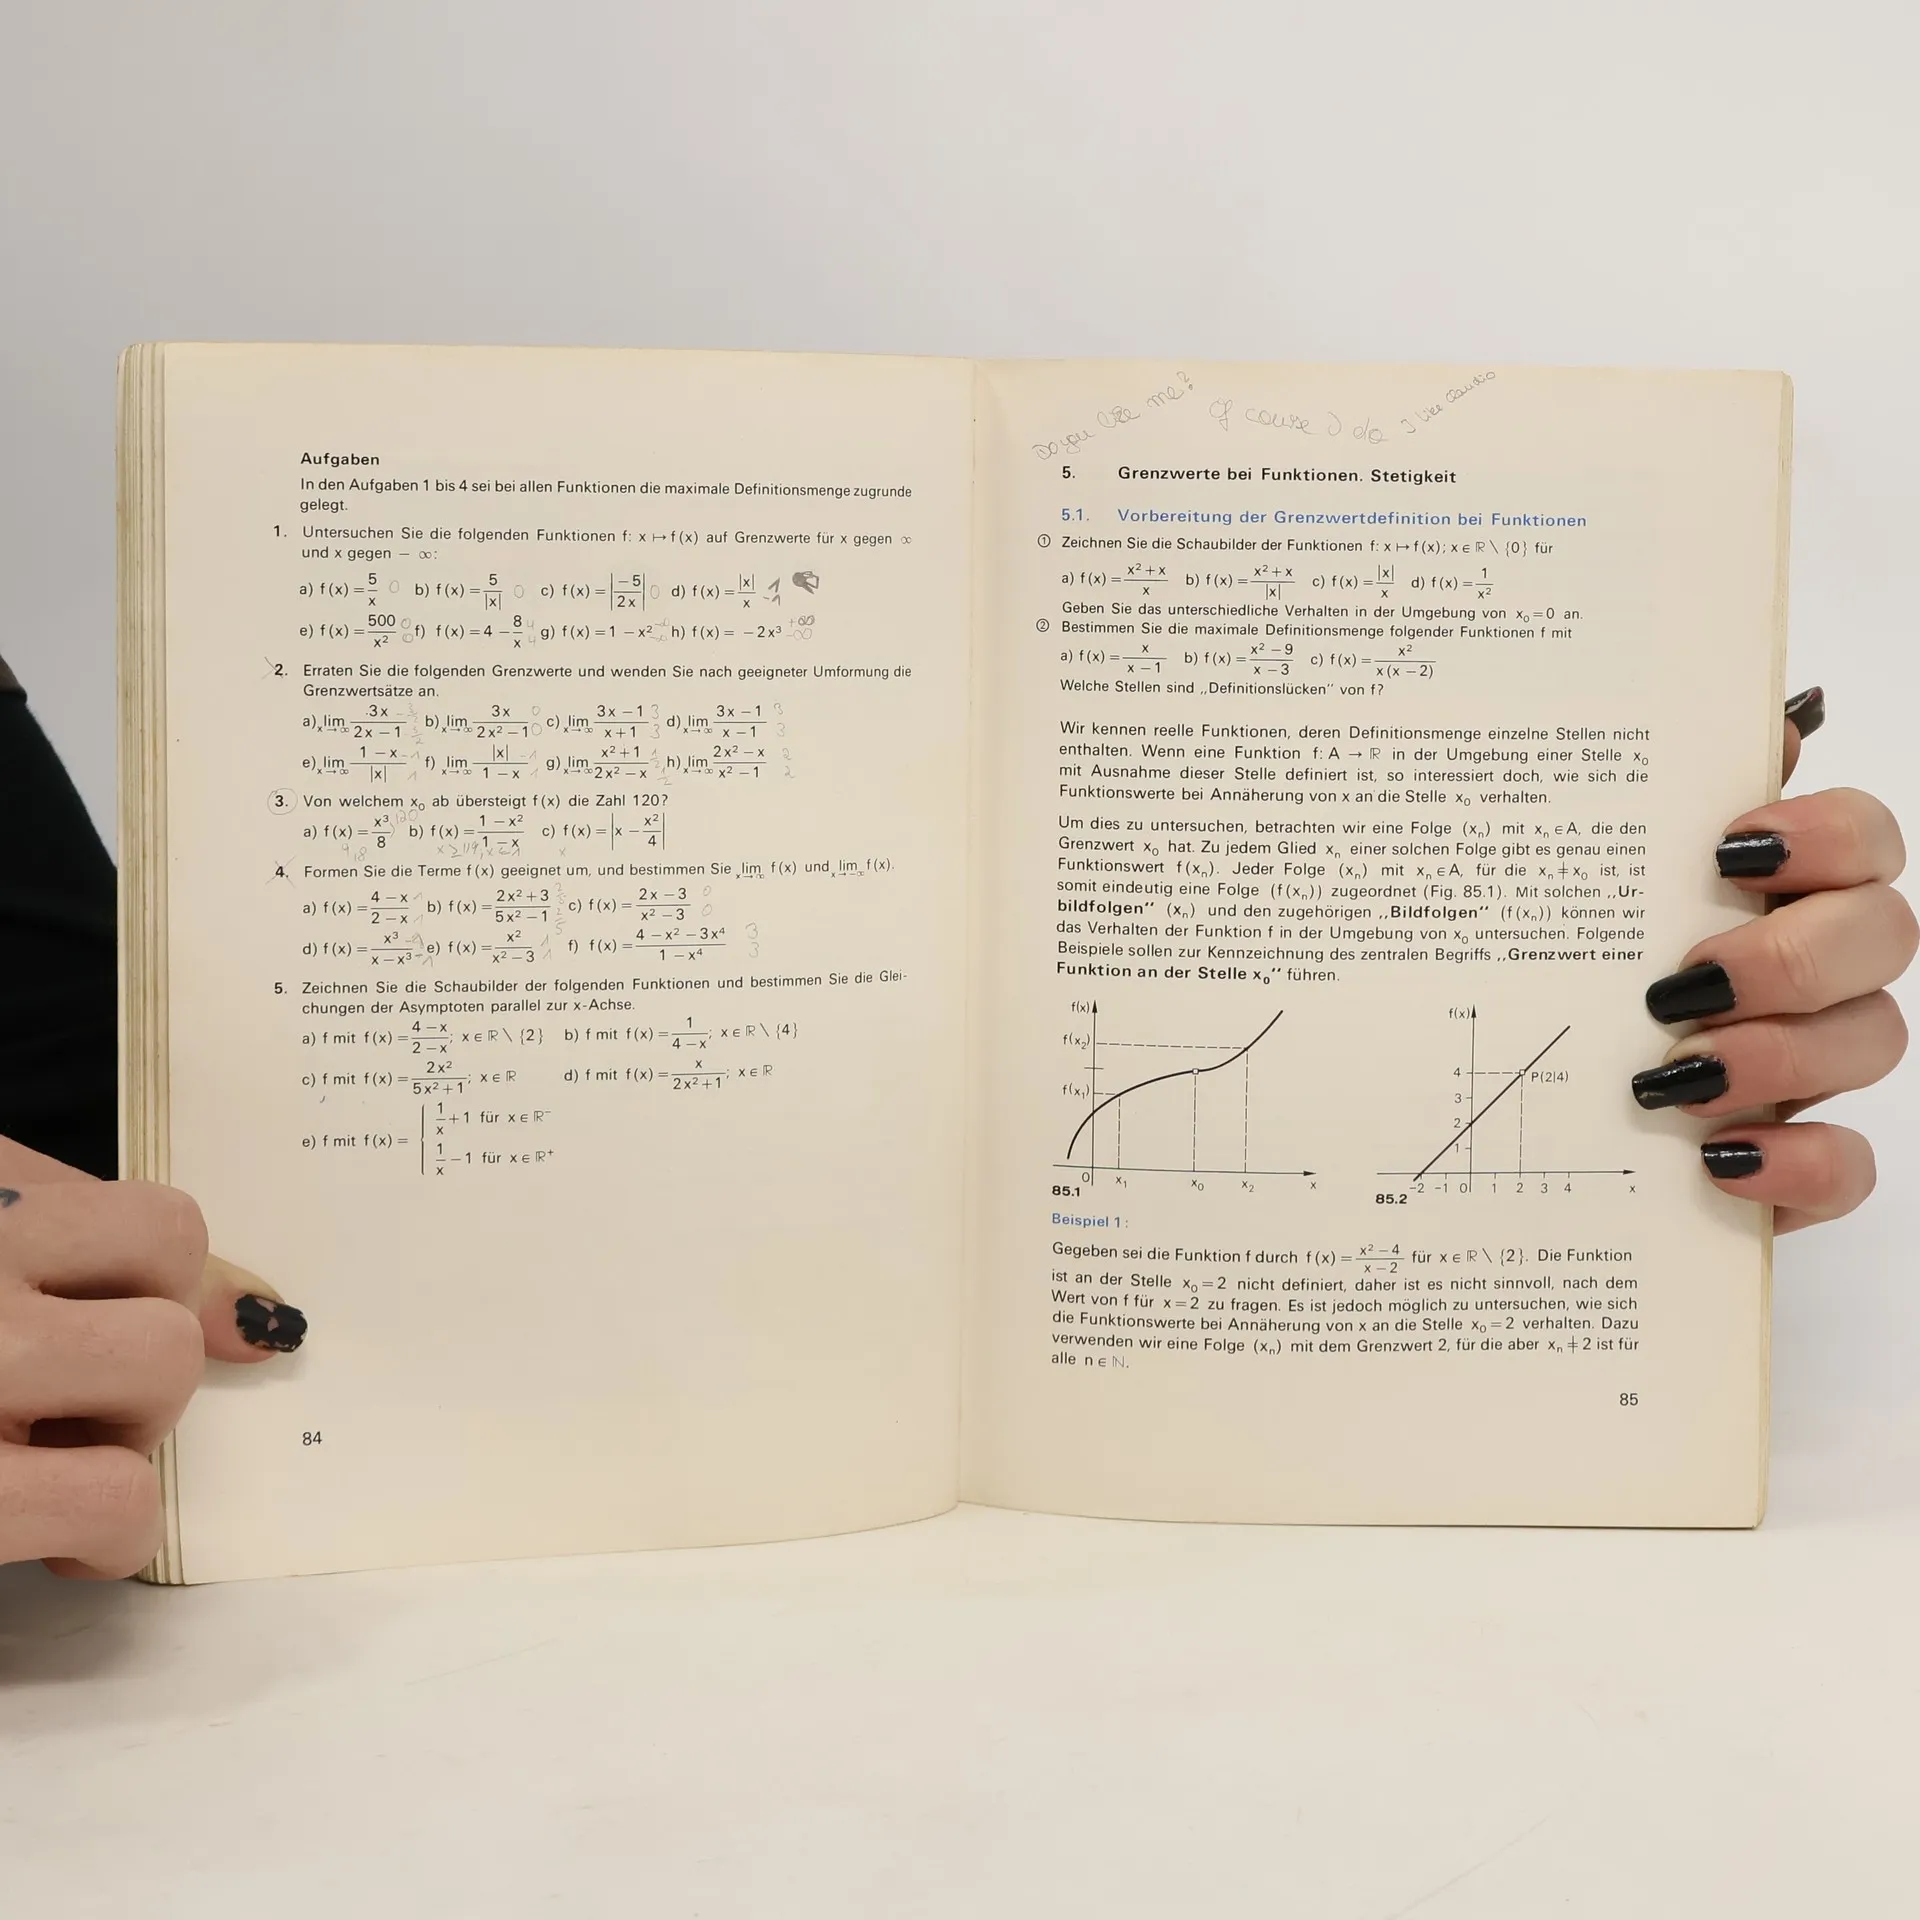 Aufgaben
In den Aufgaben 1 bis 4 sei bei allen Funktionen die maximale Definitionsmenge zugrunde
gelegt.
1. Untersuchen Sie die folgenden Funktionen f: x ↦ f(x) auf Grenzwerte für x gegen ∞
und x gegen − ∞:
a) f(x) = 5/x 0 b) f(x) = 5/|x| 0 c) f(x) = |−5/2x| 0 d) f(x) = |x|/x 1 −1
e) f(x) = 500/x² 0 0 f) f(x) = 4 − 8/x 4 4 g) f(x) = 1 − x² −∞ −∞ h) f(x) = −2x³ +∞ −∞
2. Erraten Sie die folgenden Grenzwerte und wenden Sie nach geeigneter Umformung die
Grenzwertsätze an.
a) lim x→∞ 3x/(2x − 1) 3/2 b) lim x→∞ 3x/(2x² − 1) 0 0 c) lim x→∞ (3x − 1)/(x + 1) 3 3 d) lim x→∞ (3x − 1)/(x − 1) 3 3
e) lim x→∞ (1 − x)/|x| −1 1 f) lim x→∞ |x|/(1 − x) −1 1 g) lim x→∞ (x² + 1)/(2x² − x) 1/2 1/2 h) lim x→∞ (2x² − x)/(x² − 1) 2 2
3. Von welchem x₀ ab übersteigt f(x) die Zahl 120?
a) f(x) = x³/8 120 9,8 b) f(x) = (1 − x²)/(1 − x) c) f(x) = |x − x²/4|
4. Formen Sie die Terme f(x) geeignet um, und bestimmen Sie lim x→∞ f(x) und lim x→−∞ f(x).
a) f(x) = (4 − x)/(2 − x) 1 1 b) f(x) = (2x² + 3)/(5x² − 1) 2/5 2/5 c) f(x) = (2x − 3)/(x² − 3) 0 0
d) f(x) = x³/(x − x³) −1 −1 e) f(x) = x²/(x² − 3) 1 1 f) f(x) = (4 − x² − 3x⁴)/(1 − x⁴) 3 3
5. Zeichnen Sie die Schaubilder der folgenden Funktionen und bestimmen Sie die Glei-
chungen der Asymptoten parallel zur x-Achse.
a) f mit f(x) = (4 − x)/(2 − x); x ∈ ℝ \ {2} b) f mit f(x) = 1/(4 − x); x ∈ ℝ \ {4}
c) f mit f(x) = 2x²/(5x² + 1); x ∈ ℝ d) f mit f(x) = x/(2x² + 1); x ∈ ℝ
e) f mit f(x) = { 1/x + 1 für x ∈ ℝ⁻
1/x − 1 für x ∈ ℝ⁺
84
Do you like me? Of course I do I like Claudio
5. Grenzwerte bei Funktionen. Stetigkeit
5.1. Vorbereitung der Grenzwertdefinition bei Funktionen
① Zeichnen Sie die Schaubilder der Funktionen f: x ↦ f(x); x ∈ ℝ \ {0} für
a) f(x) = (x² + x)/x b) f(x) = (x² + x)/|x| c) f(x) = |x|/x d) f(x) = 1/x²
Geben Sie das unterschiedliche Verhalten in der Umgebung von x₀ = 0 an.
② Bestimmen Sie die maximale Definitionsmenge folgender Funktionen f mit
a) f(x) = x/(x − 1) b) f(x) = (x² − 9)/(x − 3) c) f(x) = x²/(x(x − 2))
Welche Stellen sind „Definitionslücken“ von f?
Wir kennen reelle Funktionen, deren Definitionsmenge einzelne Stellen nicht
enthalten. Wenn eine Funktion f: A → ℝ in der Umgebung einer Stelle x₀
mit Ausnahme dieser Stelle definiert ist, so interessiert doch, wie sich die
Funktionswerte bei Annäherung von x an die Stelle x₀ verhalten.
Um dies zu untersuchen, betrachten wir eine Folge (xₙ) mit xₙ ∈ A, die den
Grenzwert x₀ hat. Zu jedem Glied xₙ einer solchen Folge gibt es genau einen
Funktionswert f(xₙ). Jeder Folge (xₙ) mit xₙ ∈ A, für die xₙ ≠ x₀ ist, ist
somit eindeutig eine Folge (f(xₙ)) zugeordnet (Fig. 85.1). Mit solchen „Ur-
bildfolgen“ (xₙ) und den zugehörigen „Bildfolgen“ (f(xₙ)) können wir
das Verhalten der Funktion f in der Umgebung von x₀ untersuchen. Folgende
Beispiele sollen zur Kennzeichnung des zentralen Begriffs „Grenzwert einer
Funktion an der Stelle x₀“ führen.
f(x)
f(x₂)
f(x₁)
0 x₁ x₀ x₂ x
85.1
f(x)
4 P(2|4)
3
2
1
−2 −1 0 1 2 3 4 x
85.2
Beispiel 1:
Gegeben sei die Funktion f durch f(x) = (x² − 4)/(x − 2) für x ∈ ℝ \ {2}. Die Funktion
ist an der Stelle x₀ = 2 nicht definiert, daher ist es nicht sinnvoll, nach dem
Wert von f für x = 2 zu fragen. Es ist jedoch möglich zu untersuchen, wie sich
die Funktionswerte bei Annäherung von x an die Stelle x₀ = 2 verhalten. Dazu
verwenden wir eine Folge (xₙ) mit dem Grenzwert 2, für die aber xₙ ≠ 2 ist für
alle n ∈ ℕ.
85